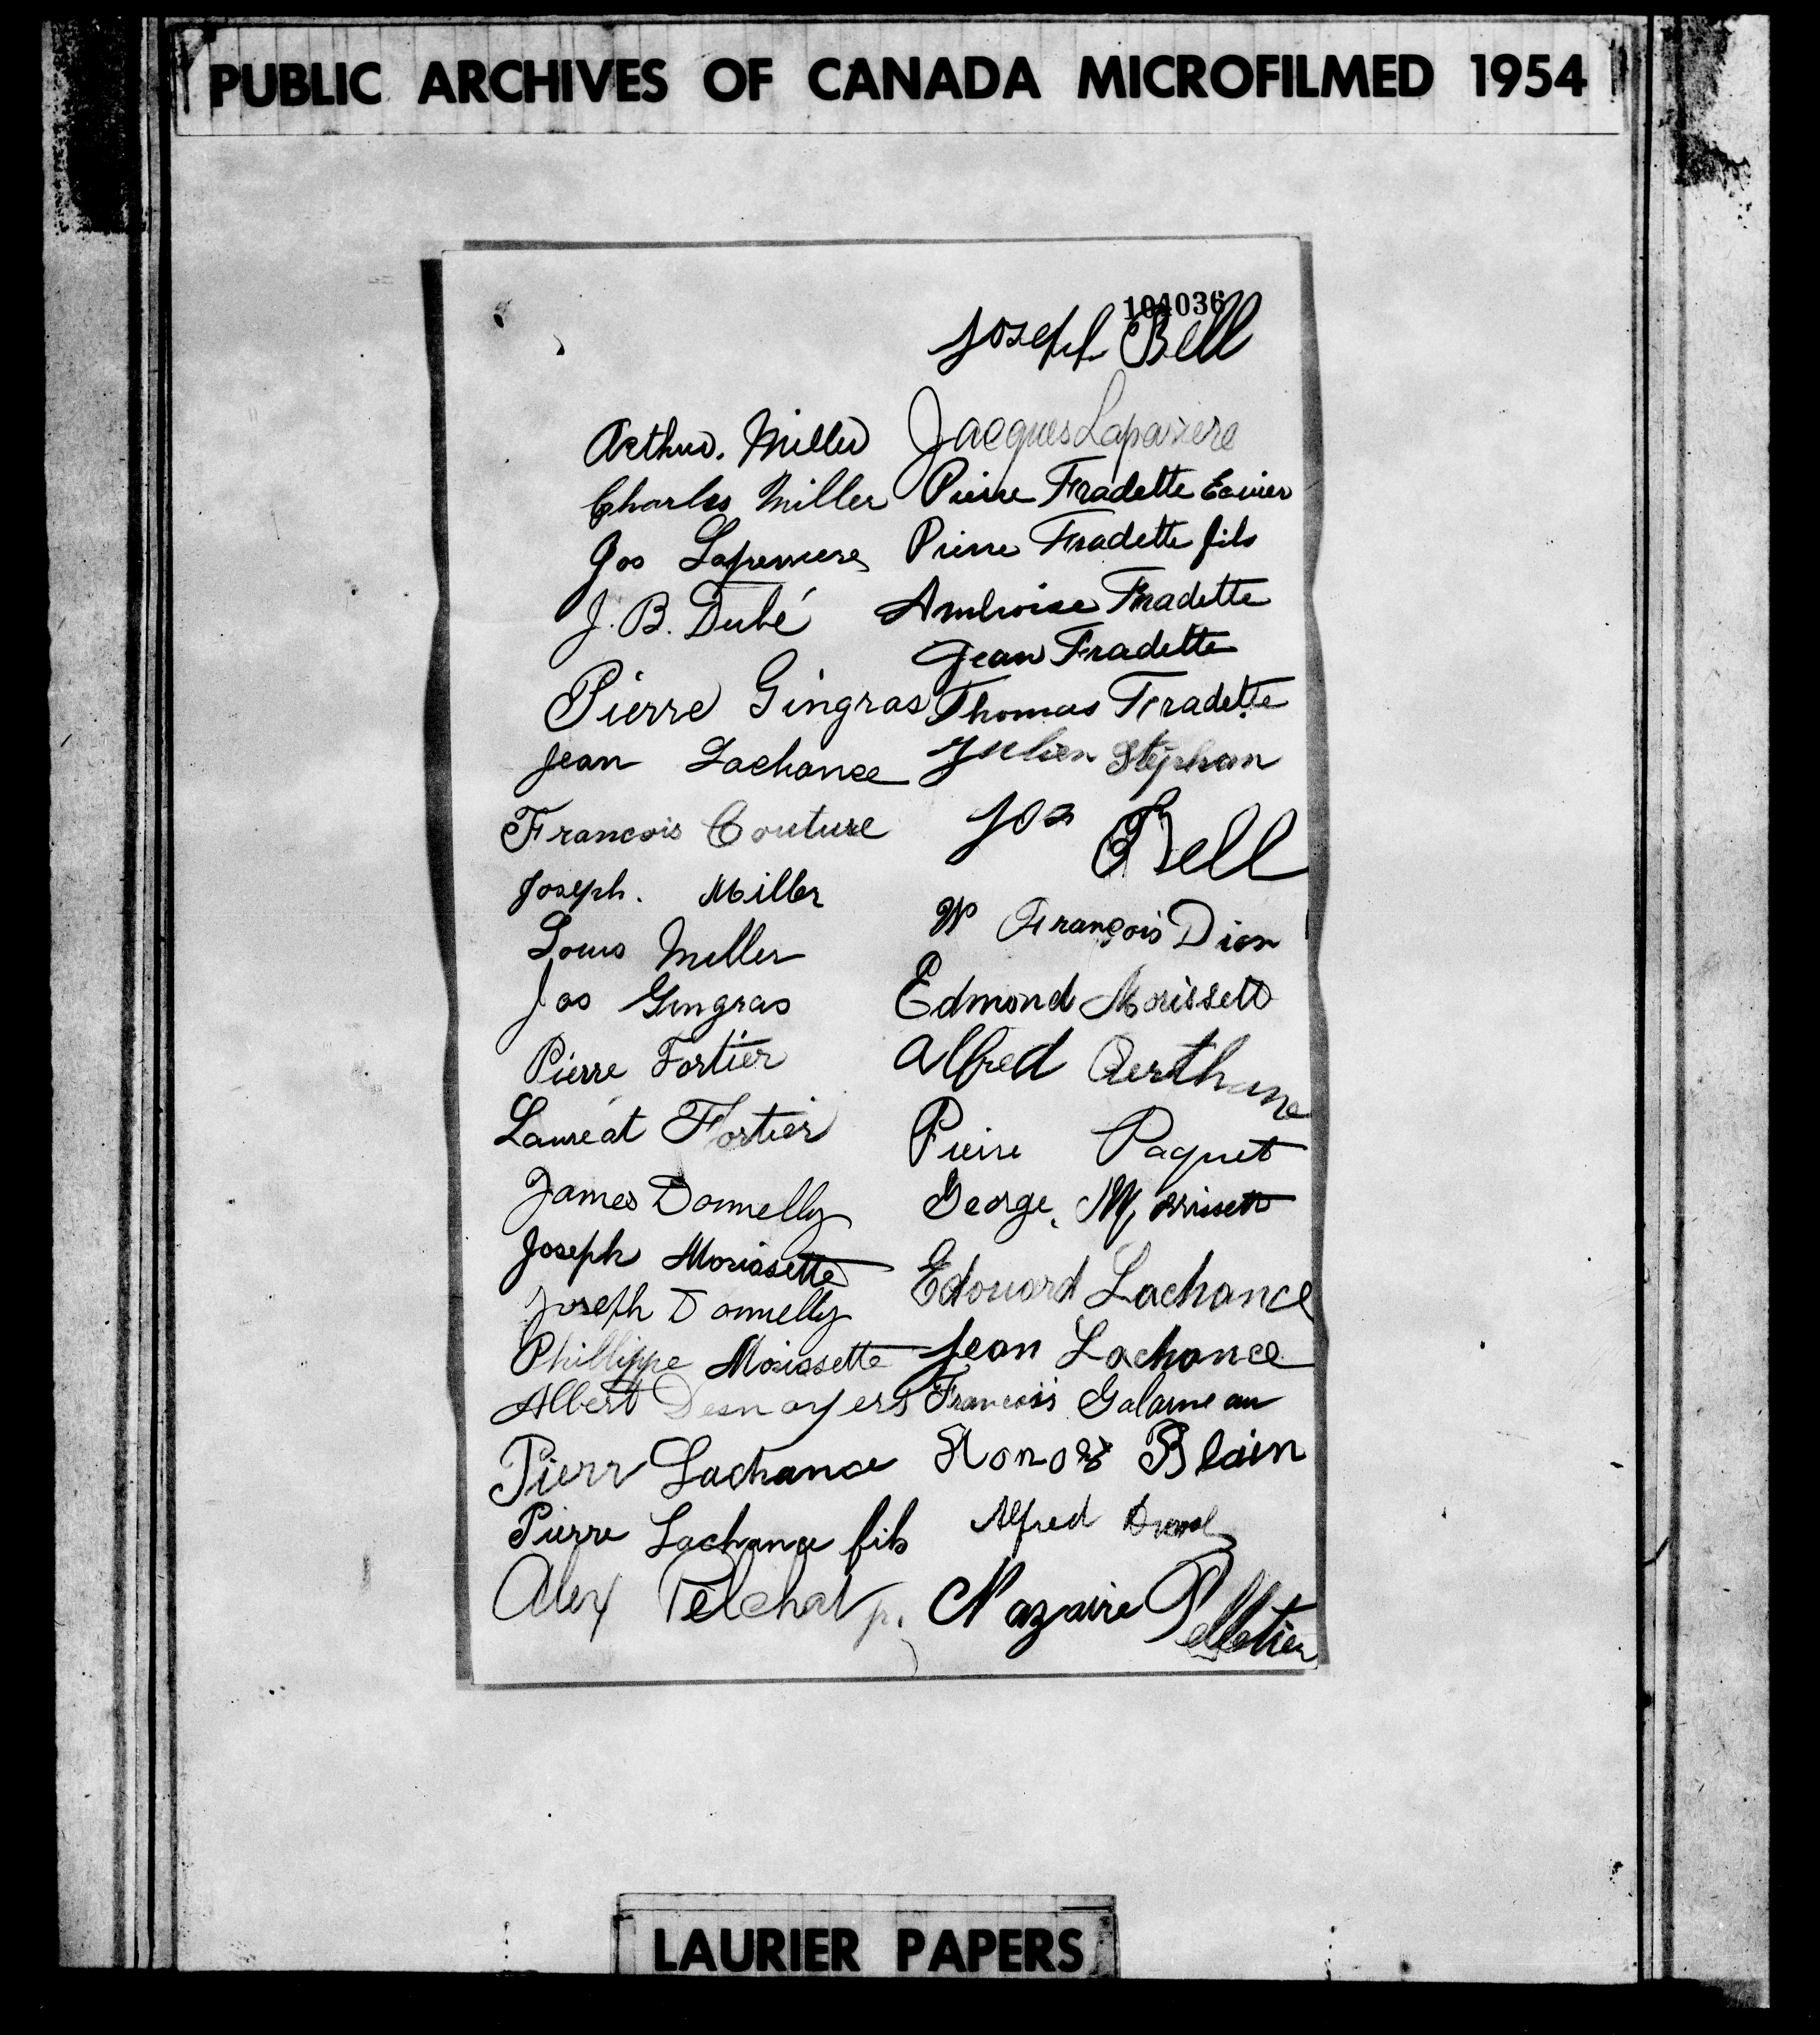 PUBLIC ARCHIVES OF CANADA MICROFILMED 1954
104036
Joseph Bell
Arthur. Miller
Charles Miller
Jos
J. B. Dubé
Pierre Gingras
Jean Lachance
Francois Couture
Joseph. Miller
Louis Miller
Jos Gingras
Pierre Fortier
Lauréat Fortier
James Donnelly
Joseph Morissette
Joseph Donnelly
Phillippe Morissette
Albert Desnoyers
Pierr Lachance
Pierre Lachance fils
Alex
Jacques
Pierre Fradette
Pierre Fradette fils
Ambroise Fradette
Jean Fradette
Thomas Fradette
Julien Stephan
Jos Bell
François Dion
Edmond Morissett
Alfred
Pierre Paquet
George Morrissett
Edouard Lachance
Jean Lachance
Francois Galarneau
Blain
Alfred
Nazaire Pelletier
LAURIER PAPERS